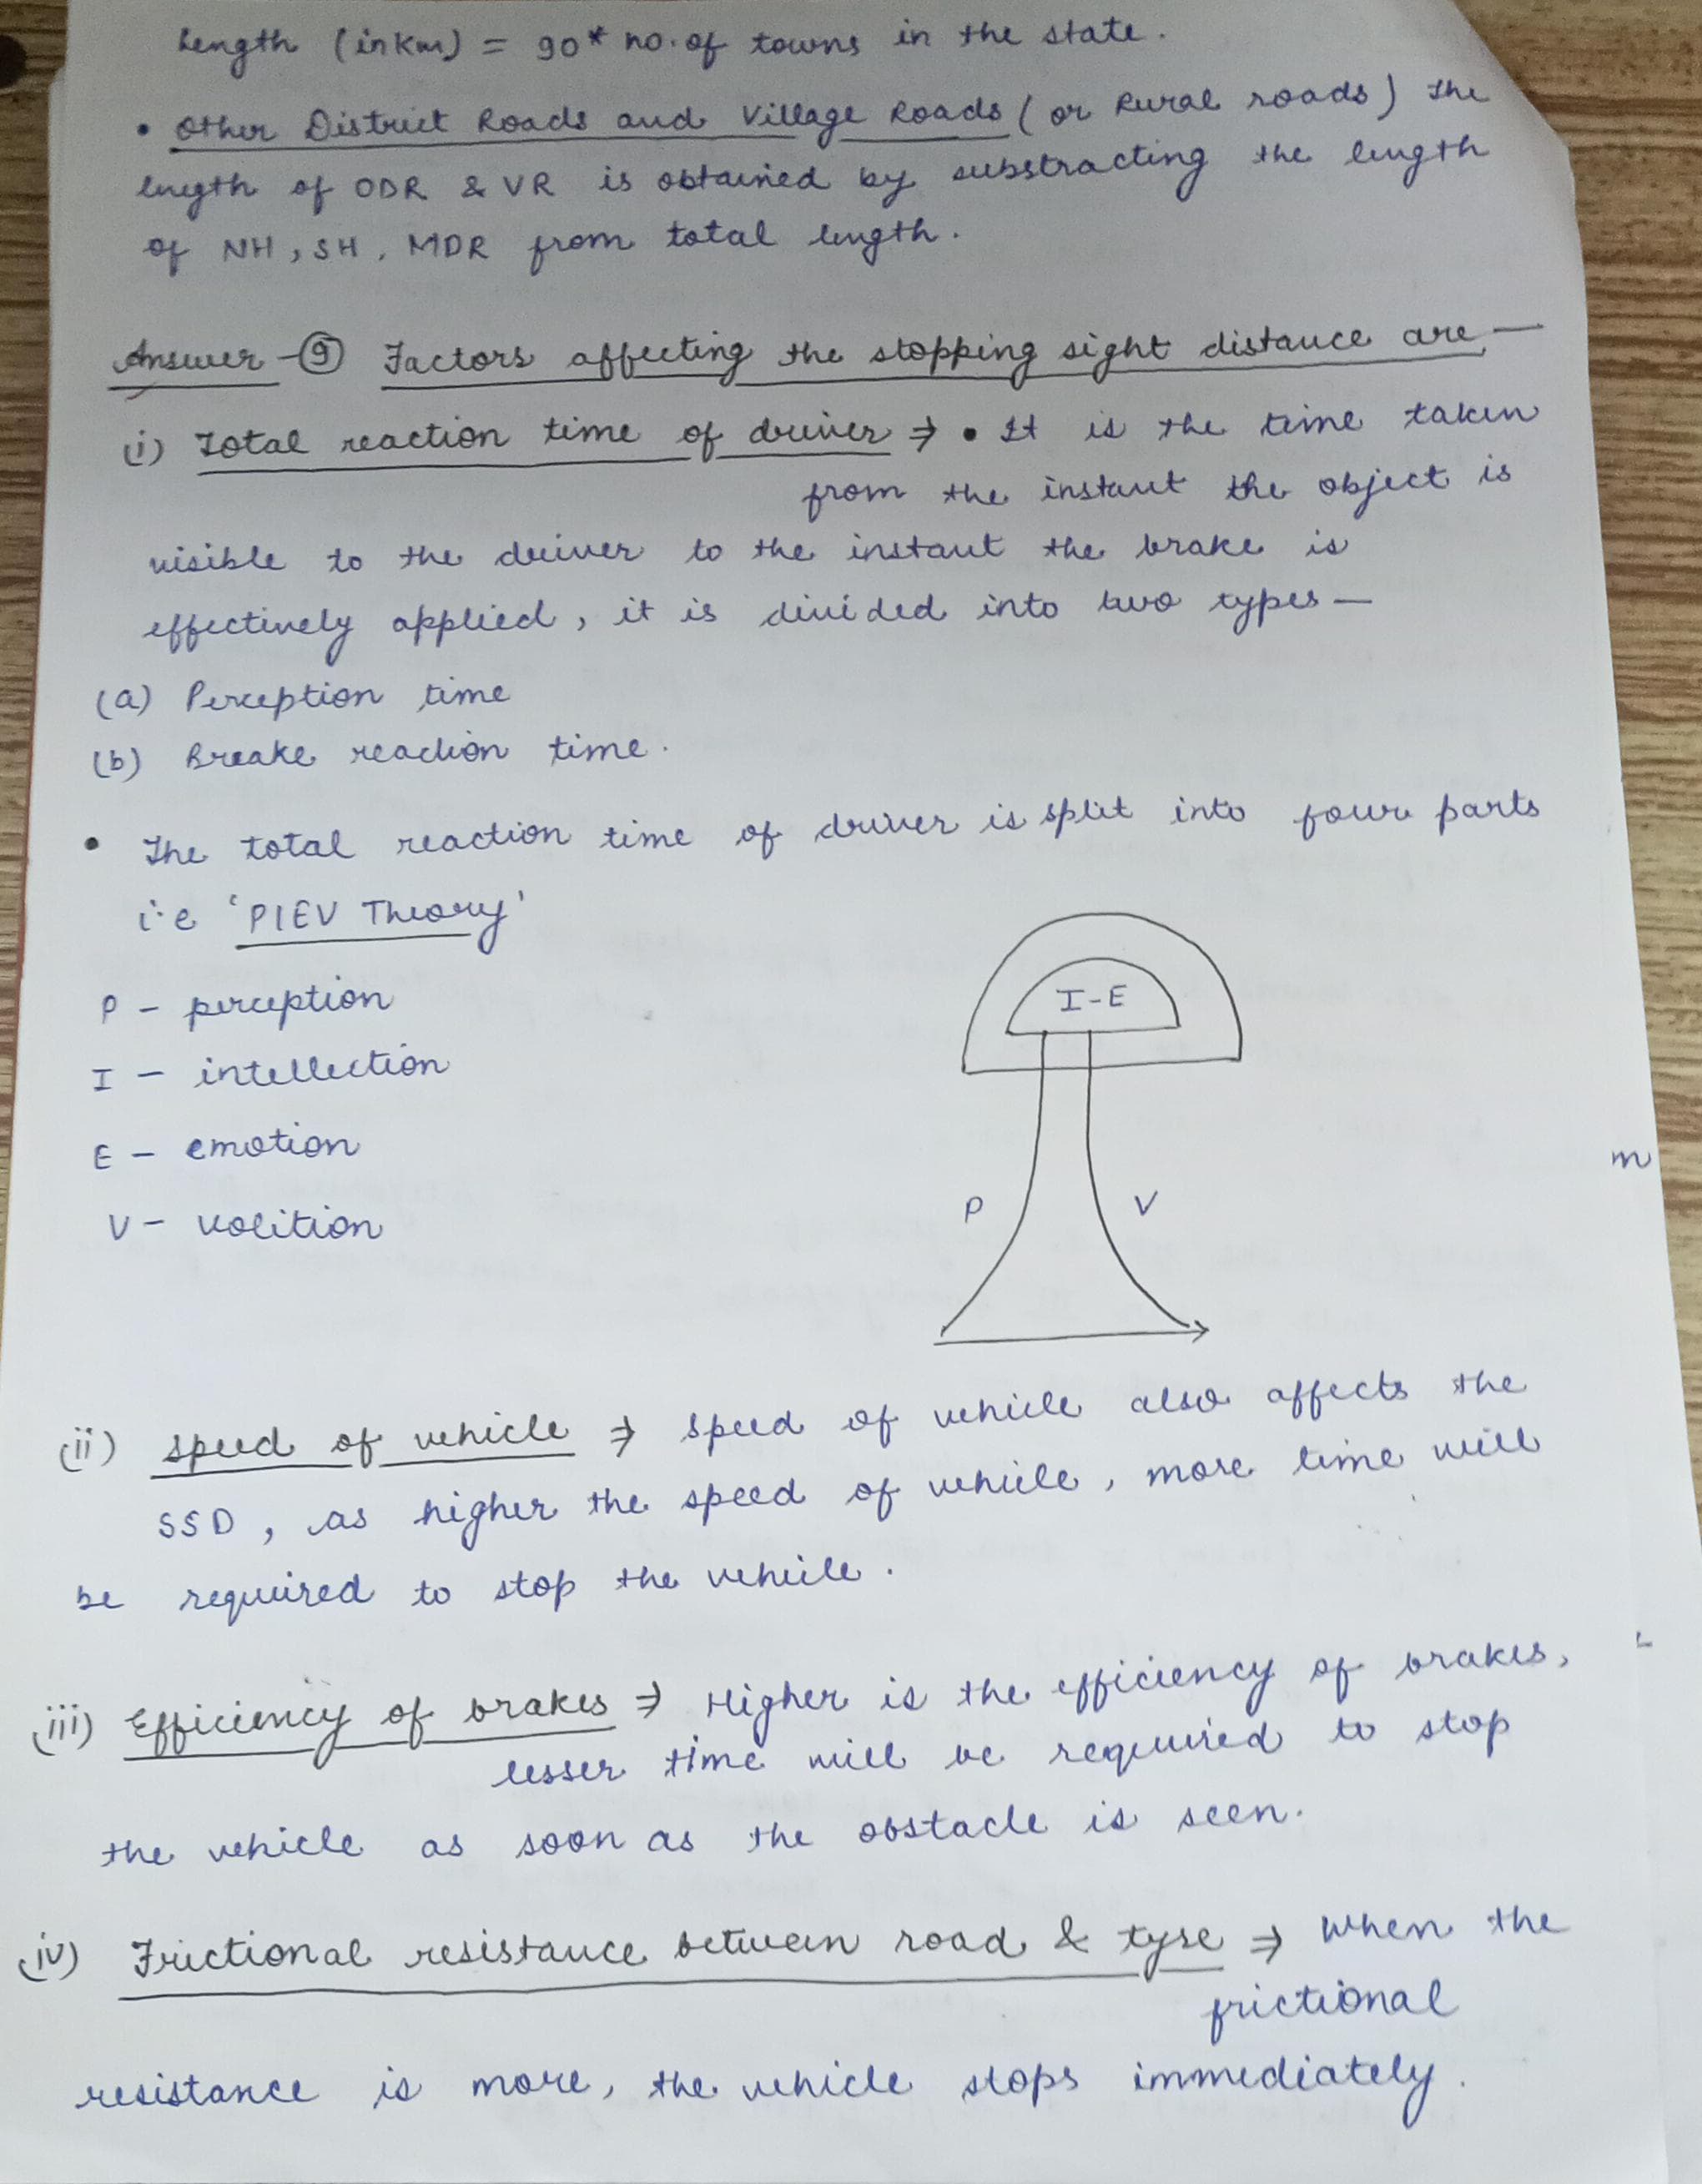 Length (in Km) = 90* no. of towns in the state.
• Other District Roads and Village Roads (or Rural roads) the
length of ODR & VR is obtained by substracting the length
of NH, SH, MDR from total length.
Answer - 9 Factors affecting the stopping sight distance are —
(i) Total reaction time of driver ⇒ • It is the time taken
from the instant the object is
visible to the driver to the instant the brake is
effectively applied, it is divided into two types —
(a) Perception time
(b) Breake reaction time.
• The total reaction time of driver is split into four parts
i.e 'PIEV Theory'
P - perception
I - intellection
E - emotion
V - volition
I - E
P
V
m
(ii) Speed of vehicle ⇒ Speed of vehicle also affects the
SSD, as higher the speed of vehicle, more time will
be required to stop the vehicle.
(iii) Efficiency of brakes ⇒ Higher is the efficiency of brakes,
lesser time will be required to stop
the vehicle as soon as the obstacle is seen.
(iv) Frictional resistance between road & tyre ⇒ When the
frictional
resistance is more, the vehicle stops immediately.